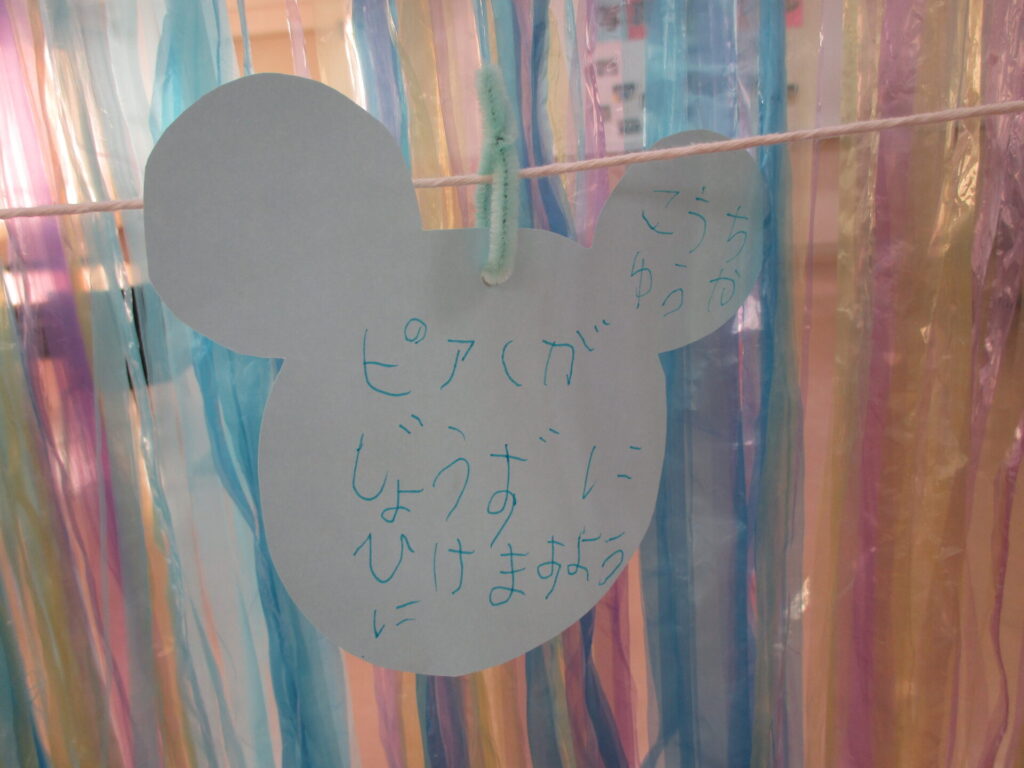 こうち
ゆうか
ピアノが
じょうずに
ひけますよう
に